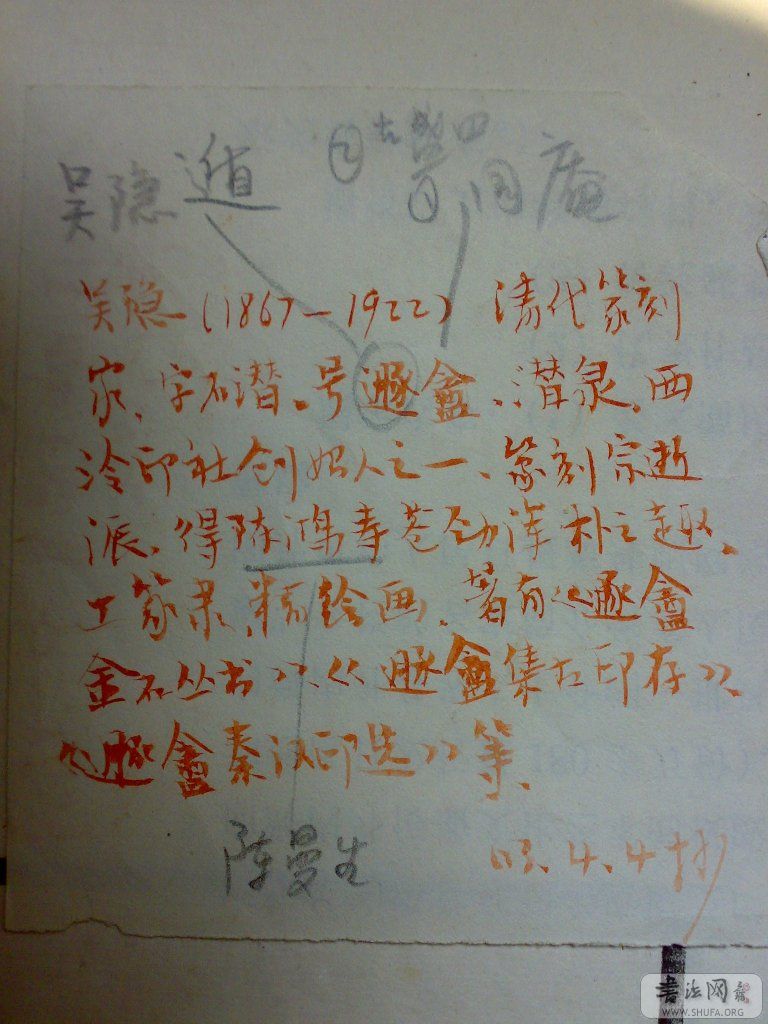 吴隐 遁 同庵
吴隐(1867-1922) 清代篆刻
家、字石潜、号遯盦、潜泉、西
泠印社创始人之一、篆刻宗浙
派、得陈鸿寿苍劲浑朴之趣、
工篆隶,精绘画、著有《遯盦
金石丛书》、《遯盦集古印存》、
《遯盦秦汉印选》等、
陈曼生
03.4.4抄
书法网
WWW.SHUFA.ORG